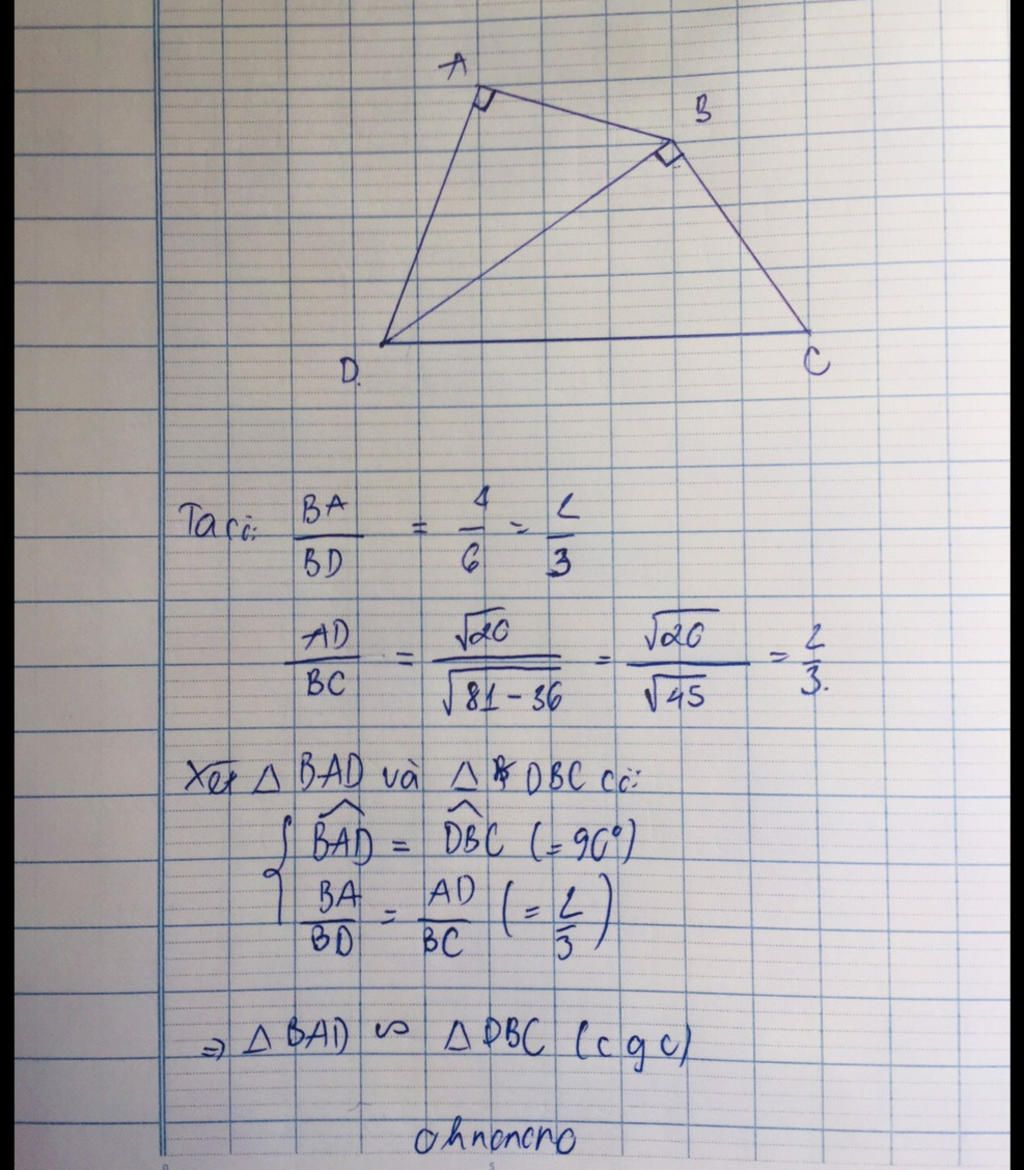 A
B
D.
C
Ta có: BA/BD = 4/6 = 2/3
AD/BC = √20/√81-36 = √20/√45 = 2/3.
Xét △ BAD và △ DBC có:
BAD = DBC (= 90°)
BA/BD = AD/BC (= 2/3)
=> △ BAD ∽ △ DBC (c g c)
ohnonono